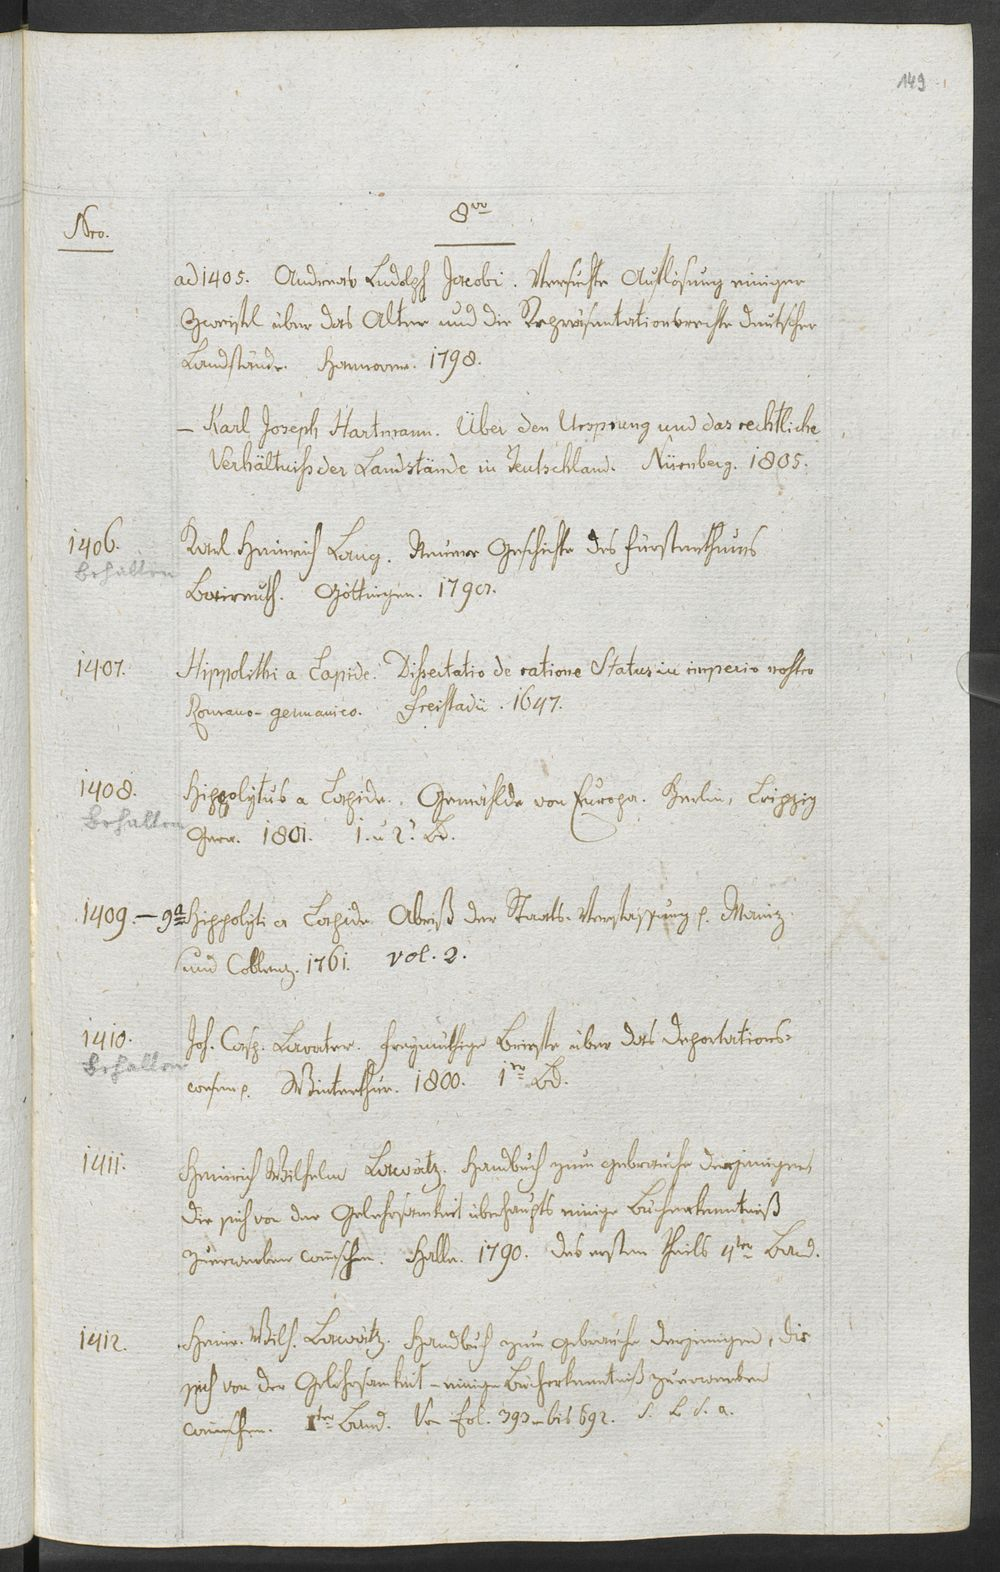 149
Nro.
8vo
ad 1405. Andreas Ludolph Jacobi. Versuchte Auflösung einiger
Zweifel über das Alter und die Repräsentationsrechte deutscher
Landstände. Hannover. 1798.
– Karl Joseph Hartmann. Über den Ursprung und das rechtliche
Verhältniß der Landstände in Teutschland. Nürnberg. 1805.
1406. Karl Heinrich Lang. Neuere Geschichte des Fürstenthums
behalten
Baireuth. Göttingen.
1407. Hippolithi a Lapide. Dissertatio de ratione Status in imperio nostro
Romano-germanico. Freistadii. 1647.
1408. Hippolytus a Lapide. Gemählde von Europa. Berlin, Leipzig
behalten
Gera. 1801. 1. u 2. Bd.
1409. – 9a Hippolyti a Lapide Abriß der Staats-Verfassung p. Mainz
und Coblenz. 1761. vol. 2.
1410. Joh. Casp. Lavater. Freymüthige Briefe über das Deportations-
behalten
wesen p. Winterthur. 1800. 1r Bd.
1411. Heinrich Wilhelm Lawätz. Handbuch zum gebrauche derjenigen
die sich von der Gelehrsamkeit überhaupts einige Bücherkenntniß
zuerwerben wünschen. Halle. 1790. des ersten Theils 4ter Band.
1412. Heinr. Wilh. Lawätz. Handbuch zum gebrauche derjenigen, die
sich von der Gelehrsamkeit – einige Bücherkenntniß zuerwerben
wünschen. 1ter Band. Von fol. 393 – bis 592. S. L. S. a.